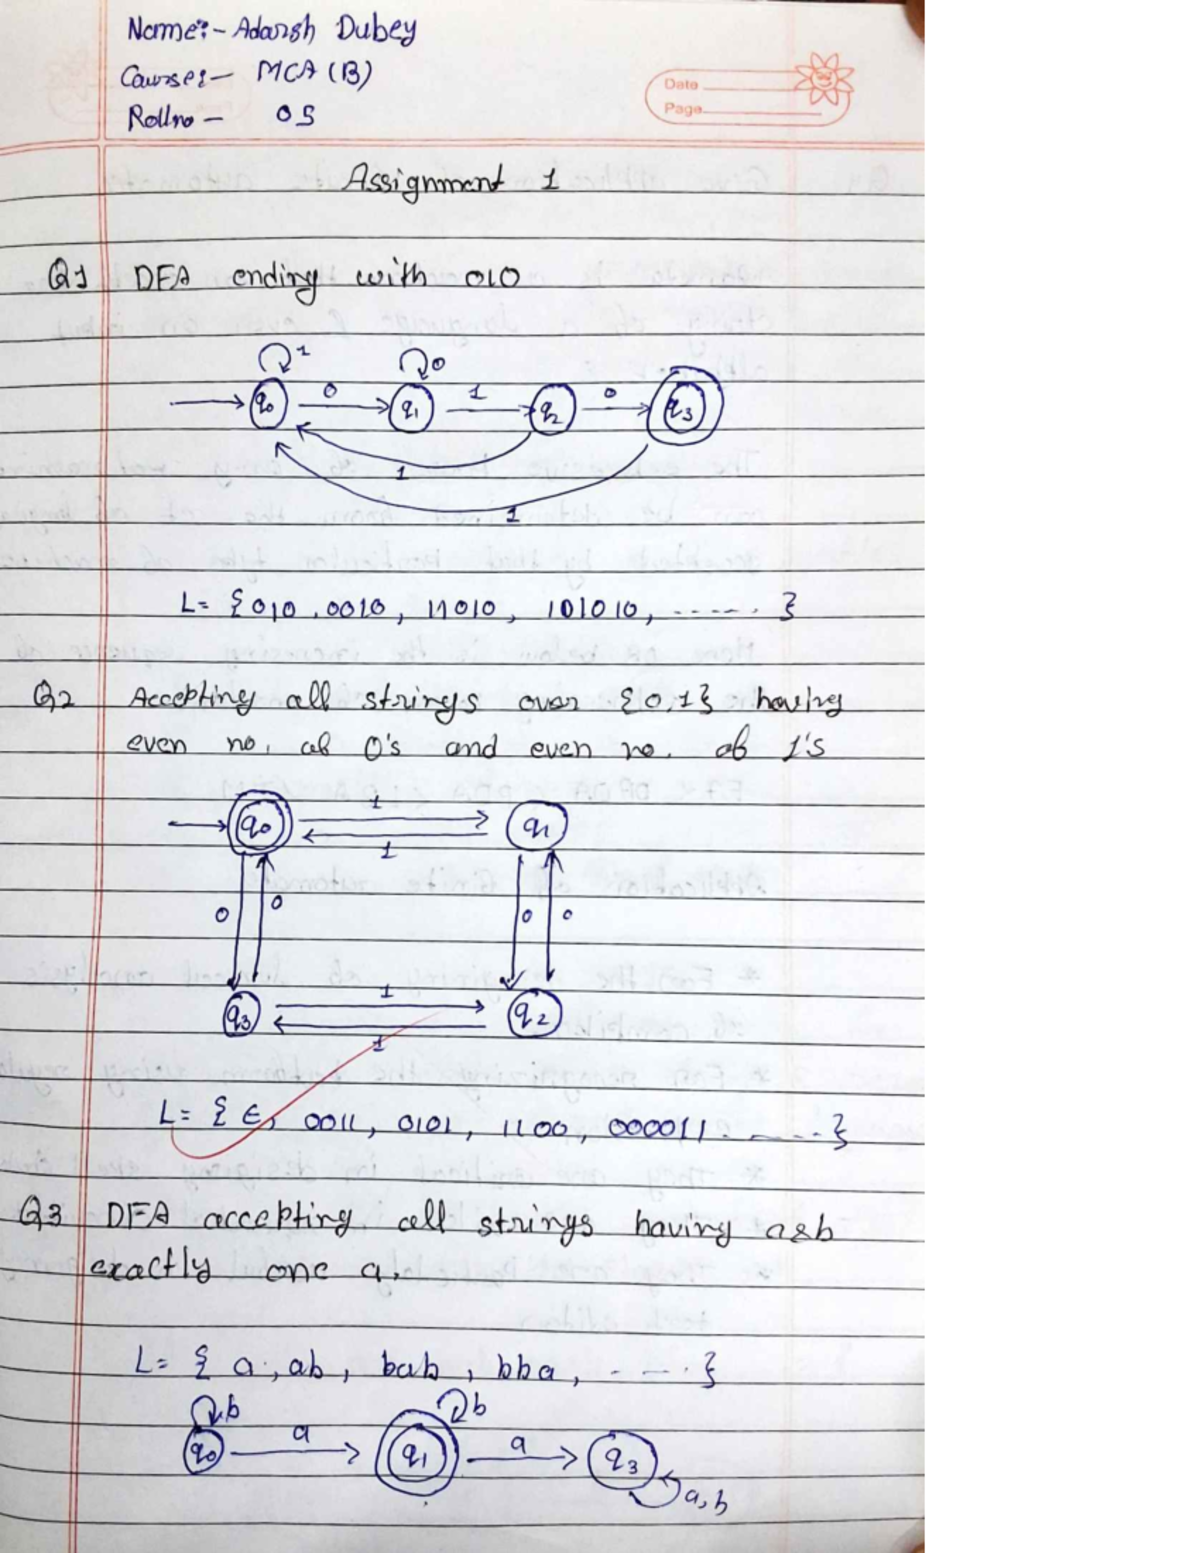 Name:- Adarsh Dubey
Course:- MCA (B)
Rollno - 05
Date
Page
Assignment 1
Q1 DFA ending with 010
1 0
q0 0 q1 1 q2 0 q3
1
1
L= {010, 0010, 11010, 101010, ------ }
Q2 Accepting all strings over {0,1} having
even no. of 0's and even no. of 1's
1
q0 q1
1
0 0 0 0
1
q3 q2
1
L= { ϵ, 0011, 0101, 1100, 000011. ----- }
Q3 DFA accepting all strings having a&b
exactly one a.
L= { a, ab, bab, bba, - --- }
b b
q0 a q1 a q3
a,b